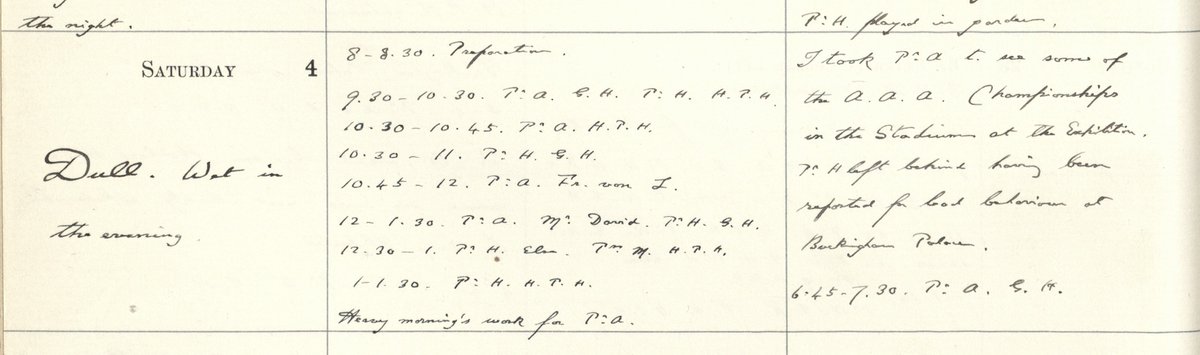 the night.
P.r H. played in garden.
SATURDAY 4
Dull. Wet in
the evening
8 - 8.30. Preparation.
9.30 - 10.30. P.r A. G. H. P.r H. H.P.H.
10.30 - 10.45. P.r A. H.P.H.
10.30 - 11. P.r H. G. H.
10.45 - 12. P.r A. Fr. von L.
12 - 1.30. P.r A. M.r David. P.r H. G. H.
12.30 - 1. P.r H. Elm. P.ss M. H.P.H.
1 - 1.30. P.r H. H.P.H.
Heavy morning's work for P.r A.
I took P.r A to see some of
the A.A.A. Championships
in the Stadium at the Exhibition.
P.r H left behind having been
reported for bad behaviour at
Buckingham Palace.
6.45-7.30. P.r A. G. H.